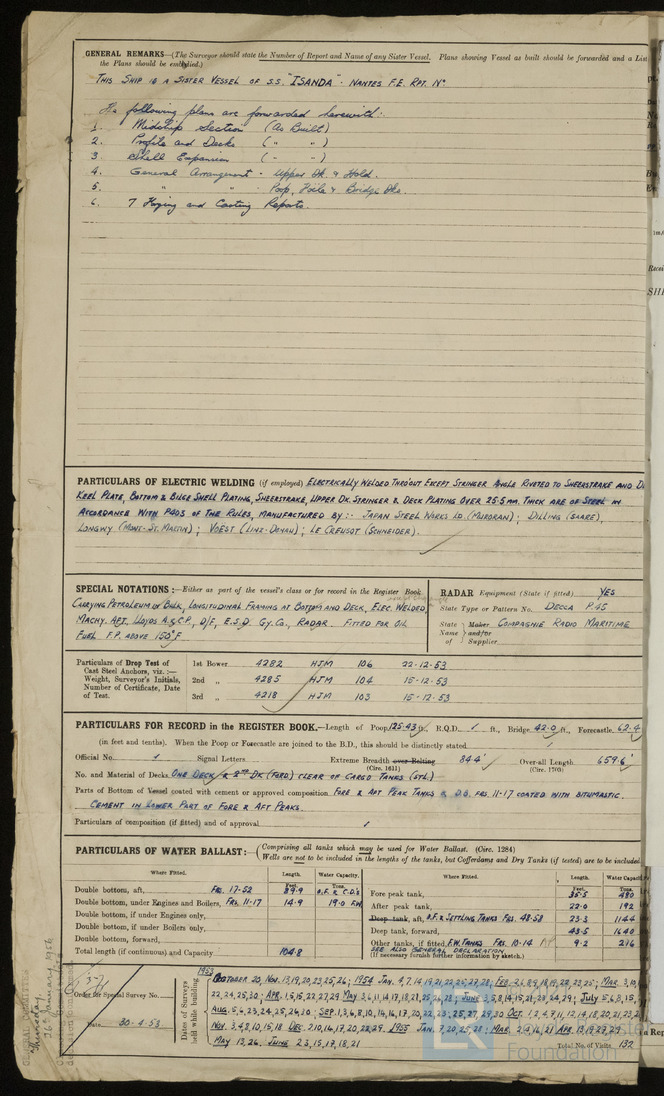 GENERAL REMARKS—(The Surveyor should state the Number of Report and Name of any Sister Vessel. Plans showing Vessel as built should be forwarded and a List
the Plans should be embodied.)
THIS SHIP IS A SISTER VESSEL OF S.S. "ISANDA" - NANTES F.E. RPT. No
The following plans are forwarded herewith:-
1. Midship Section (As Built)
2. Profile and Decks ( " " )
3. Shell Expansion ( - - )
4. General Arrangement - Upper Dk & Hold.
5. " " Poop, Fo'cle & Bridge Dks.
6. 7 Forging and Casting Reports
PARTICULARS OF ELECTRIC WELDING (if employed) ELECTRICALLY WELDED THRO'OUT EXCEPT STRINGER ANGLE RIVETED TO SHEERSTRAKE AND D
KEEL PLATE, BOTTOM & BILGE SHELL PLATING, SHEERSTRAKE, UPPER DK. STRINGER & DECK PLATING OVER 25.5 MM. THICK ARE OF STEEL IN
ACCORDANCE WITH P403 OF THE RULES, MANUFACTURED BY:- JAPAN STEEL WORKS LD. (MURORAN); DILLING (SAARE),
LONGWY (MONT-ST. MARTIN); VOEST (LINZ-DONAU); LE CREUSOT (SCHNEIDER).
SPECIAL NOTATIONS:—Either as part of the vessel's class or for record in the Register Book
CARRYING PETROLEUM IN BULK, LONGITUDINAL FRAMING AT BOTTOM AND DECK, ELEC. WELDED,
MACHY. AFT. LLOYDS A.&C.P., D/F, E.S.D. GY.CO., RADAR. FITTED FOR OIL
FUEL F.P. ABOVE 150°F
RADAR Equipment (State if fitted) YES
State Type or Pattern No. DECCA P.45
State Name Maker and/or Supplier COMPAGNIE RADIO MARITIME
Particulars of Drop Test of Cast Steel Anchors, viz.:— Weight, Surveyor's Initials, Number of Certificate, Date of Test.
1st Bower 4282 HJM 106 22-12-53
2nd " 4285 HJM 104 15-12-53
3rd " 4218 HJM 103 15-12-53
PARTICULARS FOR RECORD in the REGISTER BOOK.—Length of Poop 125.43 ft., R.Q.D. / ft., Bridge 42.0 ft., Forecastle 62.4
(in feet and tenths). When the Poop or Forecastle are joined to the B.D., this should be distinctly stated /
Official No. / Signal Letters Extreme Breadth over Belting 84.4' Over-all Length 659.6'
(Circ. 1611) (Circ. 1703)
No. and Material of Decks ONE DECK & 2ND DK (FORD) CLEAR OF CARGO TANKS (STL)
Parts of Bottom of Vessel coated with cement or approved composition FORE & AFT PEAK TANKS & D.B. FRS. 11-17 COATED WITH BITUMASTIC.
CEMENT IN LOWER PART OF FORE & AFT PEAKS.
Particulars of composition (if fitted) and of approval /
PARTICULARS OF WATER BALLAST:— Comprising all tanks which may be used for Water Ballast. (Circ. 1284)
Wells are not to be included in the lengths of the tanks, but Cofferdams and Dry Tanks (if tested) are to be included
Where Fitted. Length. Water Capacity. Where Fitted. Length. Water Capacity
Feet. Tons. Feet. Tons.
Double bottom, aft, FRS. 17-52 89.9 O.F. & C.D's
Double bottom, under Engines and Boilers, FRS. 11-17 14.9 19.0 F.W.
Double bottom, if under Engines only,
Double bottom, if under Boilers only,
Double bottom, forward,
Total length (if continuous) and Capacity 104.8
Fore peak tank, 35.5 480
After peak tank, 22.0 192
Deep tank, aft, O.F. & SETTLING TANKS FRS. 48-58 23.3 1144
Deep tank, forward, 43.5 1640
Other tanks, if fitted, F.W. TANKS FRS. 10-14 9.2 216
SEE ALSO GENERAL DECLARATION
(If necessary furnish further information by sketch.)
Order for Special Survey No.
Date 30-4-53
Thursday,
26th January 1956
Dates of Surveys held while building
1953
OCTOBER 20, NOV. 13, 19, 20, 23, 25, 26; 1954 JAN. 4, 7, 14, 19, 21, 22, 25, 27, 28; FEB. 2, 6, 8, 9, 18, 19, 22, 23, 25; MAR. 3, 10,
22, 24, 25, 30; APR. 1, 6, 15, 22, 27, 29 MAY 3, 6, 11, 14, 17, 18, 21, 25, 26, 28; JUNE 3, 5, 8, 14, 15, 21, 23, 24, 29; JULY 5, 6, 13, 15,
AUG. 5, 6, 23, 24, 25, 26, 30; SEP. 1, 3, 6, 8, 10, 14, 16, 17, 20, 22, 23, 25, 27, 29, 30 OCT. 1, 2, 4, 7, 11, 12, 14, 18, 20, 21, 23, 2
NOV. 3, 4, 8, 10, 15, 18 DEC. 2, 10, 16, 17, 20, 22, 29. 1955 JAN. 7, 20, 25, 28; MAR. 2, 4, 16, 21 APR. 13, 19, 27, 29
MAY 13, 26. JUNE 2, 3, 15, 17, 18, 21
Total No. of Visits 132
Foundation